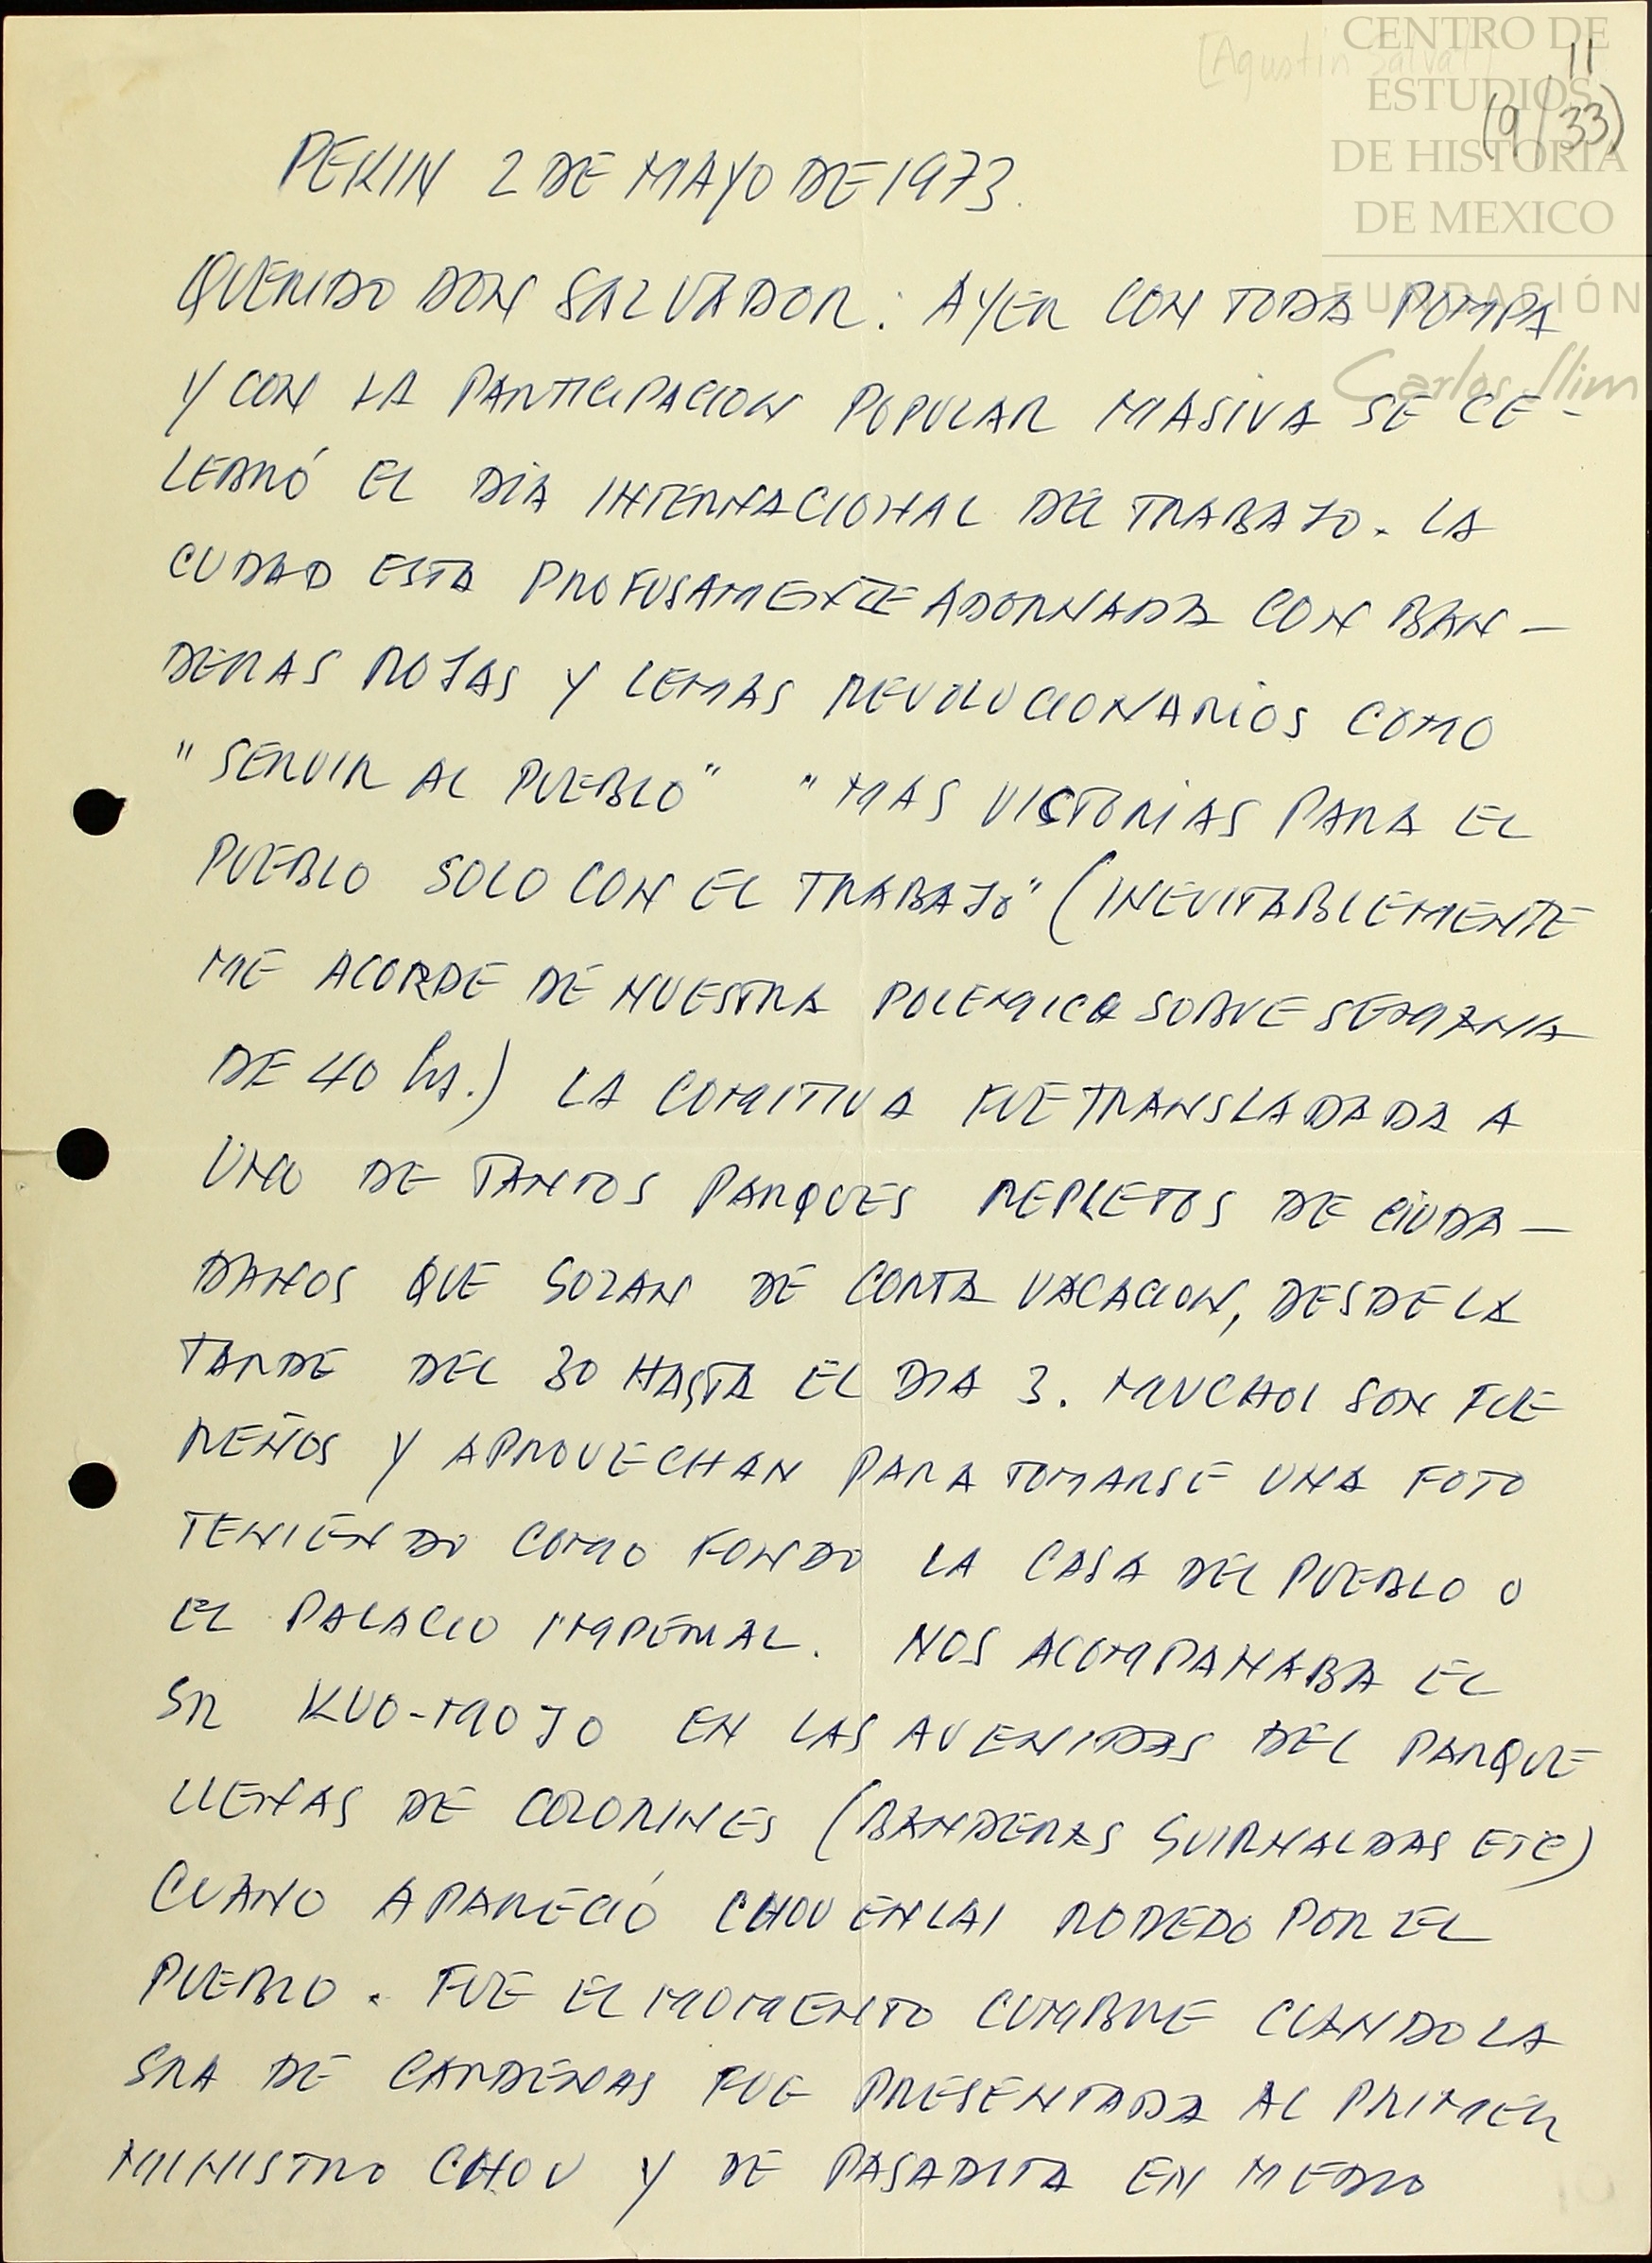 [Agustin Salvat]
11
(9/33)
CENTRO DE
ESTUDIOS
DE HISTORIA
DE MEXICO
FUNDACIÓN
Carlos Slim
PEKIN 2 DE MAYO DE 1973.
QUERIDO DON SALVADOR: AYER CON TODA POMPA
Y CON LA PARTICIPACION POPULAR MASIVA SE CE-
LEBRÓ EL DIA INTERNACIONAL DEL TRABAJO. LA
CUDAD ESTA PROFUSAMENTE ADORNADA CON BAN-
DERAS ROJAS Y LEMAS REVOLUCIONARIOS COMO
"SERVIR AL PUEBLO" "MAS VICTORIAS PARA EL
PUEBLO SOLO CON EL TRABAJO" (INEVITABLEMENTE
ME ACORDE DE NUESTRA POLEMICA SOBRE SEMANA
DE 40 hs.) LA COMITIVA FUE TRANSLADADA A
UNO DE TANTOS PARQUES REPLETOS DE CIUDA-
DANOS QUE GOZAN DE CORTA VACACION, DESDE LA
TARDE DEL 30 HASTA EL DIA 3. MUCHOS SON FUE
REÑOS Y APROVECHAN PARA TOMARSE UNA FOTO
TENIENDO COMO FONDO LA CASA DEL PUEBLO O
EL PALACIO IMPERIAL. NOS ACOMPANABA EL
SR KUO-MOJO EN LAS AVENIDAS DEL PARQUE
LLENAS DE COLORINES (BANDERAS GUIRNALDAS ETC)
CUANO APARECIÓ CHOU ENLAI RODEDO POR EL
PUEBLO. FUE EL MOMENTO CUMBRE CUANDO LA
SRA DE CARDENAS FUE PRESENTADA AL PRIMER
MINISTRO CHOU Y DE PASADITA EN MEDIO